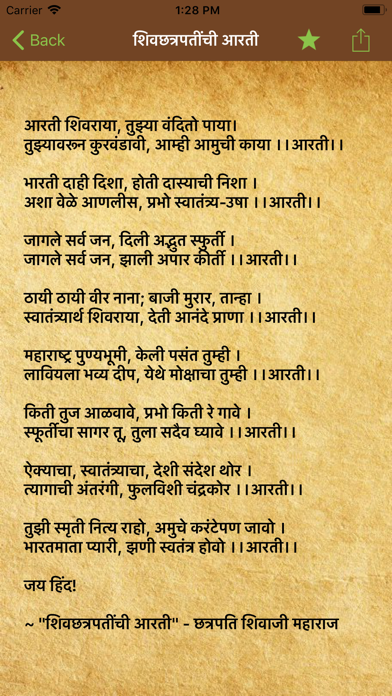 Carrier 1:28 PM
Back शिवछत्रपतींची आरती
आरती शिवराया, तुझ्या वंदितो पाया।
तुझ्यावरून कुरवंडावी, आम्ही आमुची काया ।।आरती।।
भारती दाही दिशा, होती दास्याची निशा ।
अशा वेळे आणलीस, प्रभो स्वातंत्र्य-उषा ।।आरती।।
जागले सर्व जन, दिली अद्भुत स्फुर्ती ।
जागले सर्व जन, झाली अपार कीर्ती ।।आरती।।
ठायी ठायी वीर नाना; बाजी मुरार, तान्हा ।
स्वातंत्र्यार्थ शिवराया, देती आनंदे प्राणा ।।आरती।।
महाराष्ट्र पुण्यभूमी, केली पसंत तुम्ही ।
लावियला भव्य दीप, येथे मोक्षाचा तुम्ही ।।आरती।।
किती तुज आळवावे, प्रभो किती रे गावे ।
स्फूर्तीचा सागर तू, तुला सदैव घ्यावे ।।आरती।।
ऐक्याचा, स्वातंत्र्याचा, देशी संदेश थोर ।
त्यागाची अंतरंगी, फुलविशी चंद्रकोर ।।आरती।।
तुझी स्मृती नित्य राहो, अमुचे करंटेपण जावो ।
भारतमाता प्यारी, झणी स्वतंत्र होवो ।।आरती।।
जय हिंद!
~ "शिवछत्रपतींची आरती" - छत्रपति शिवाजी महाराज